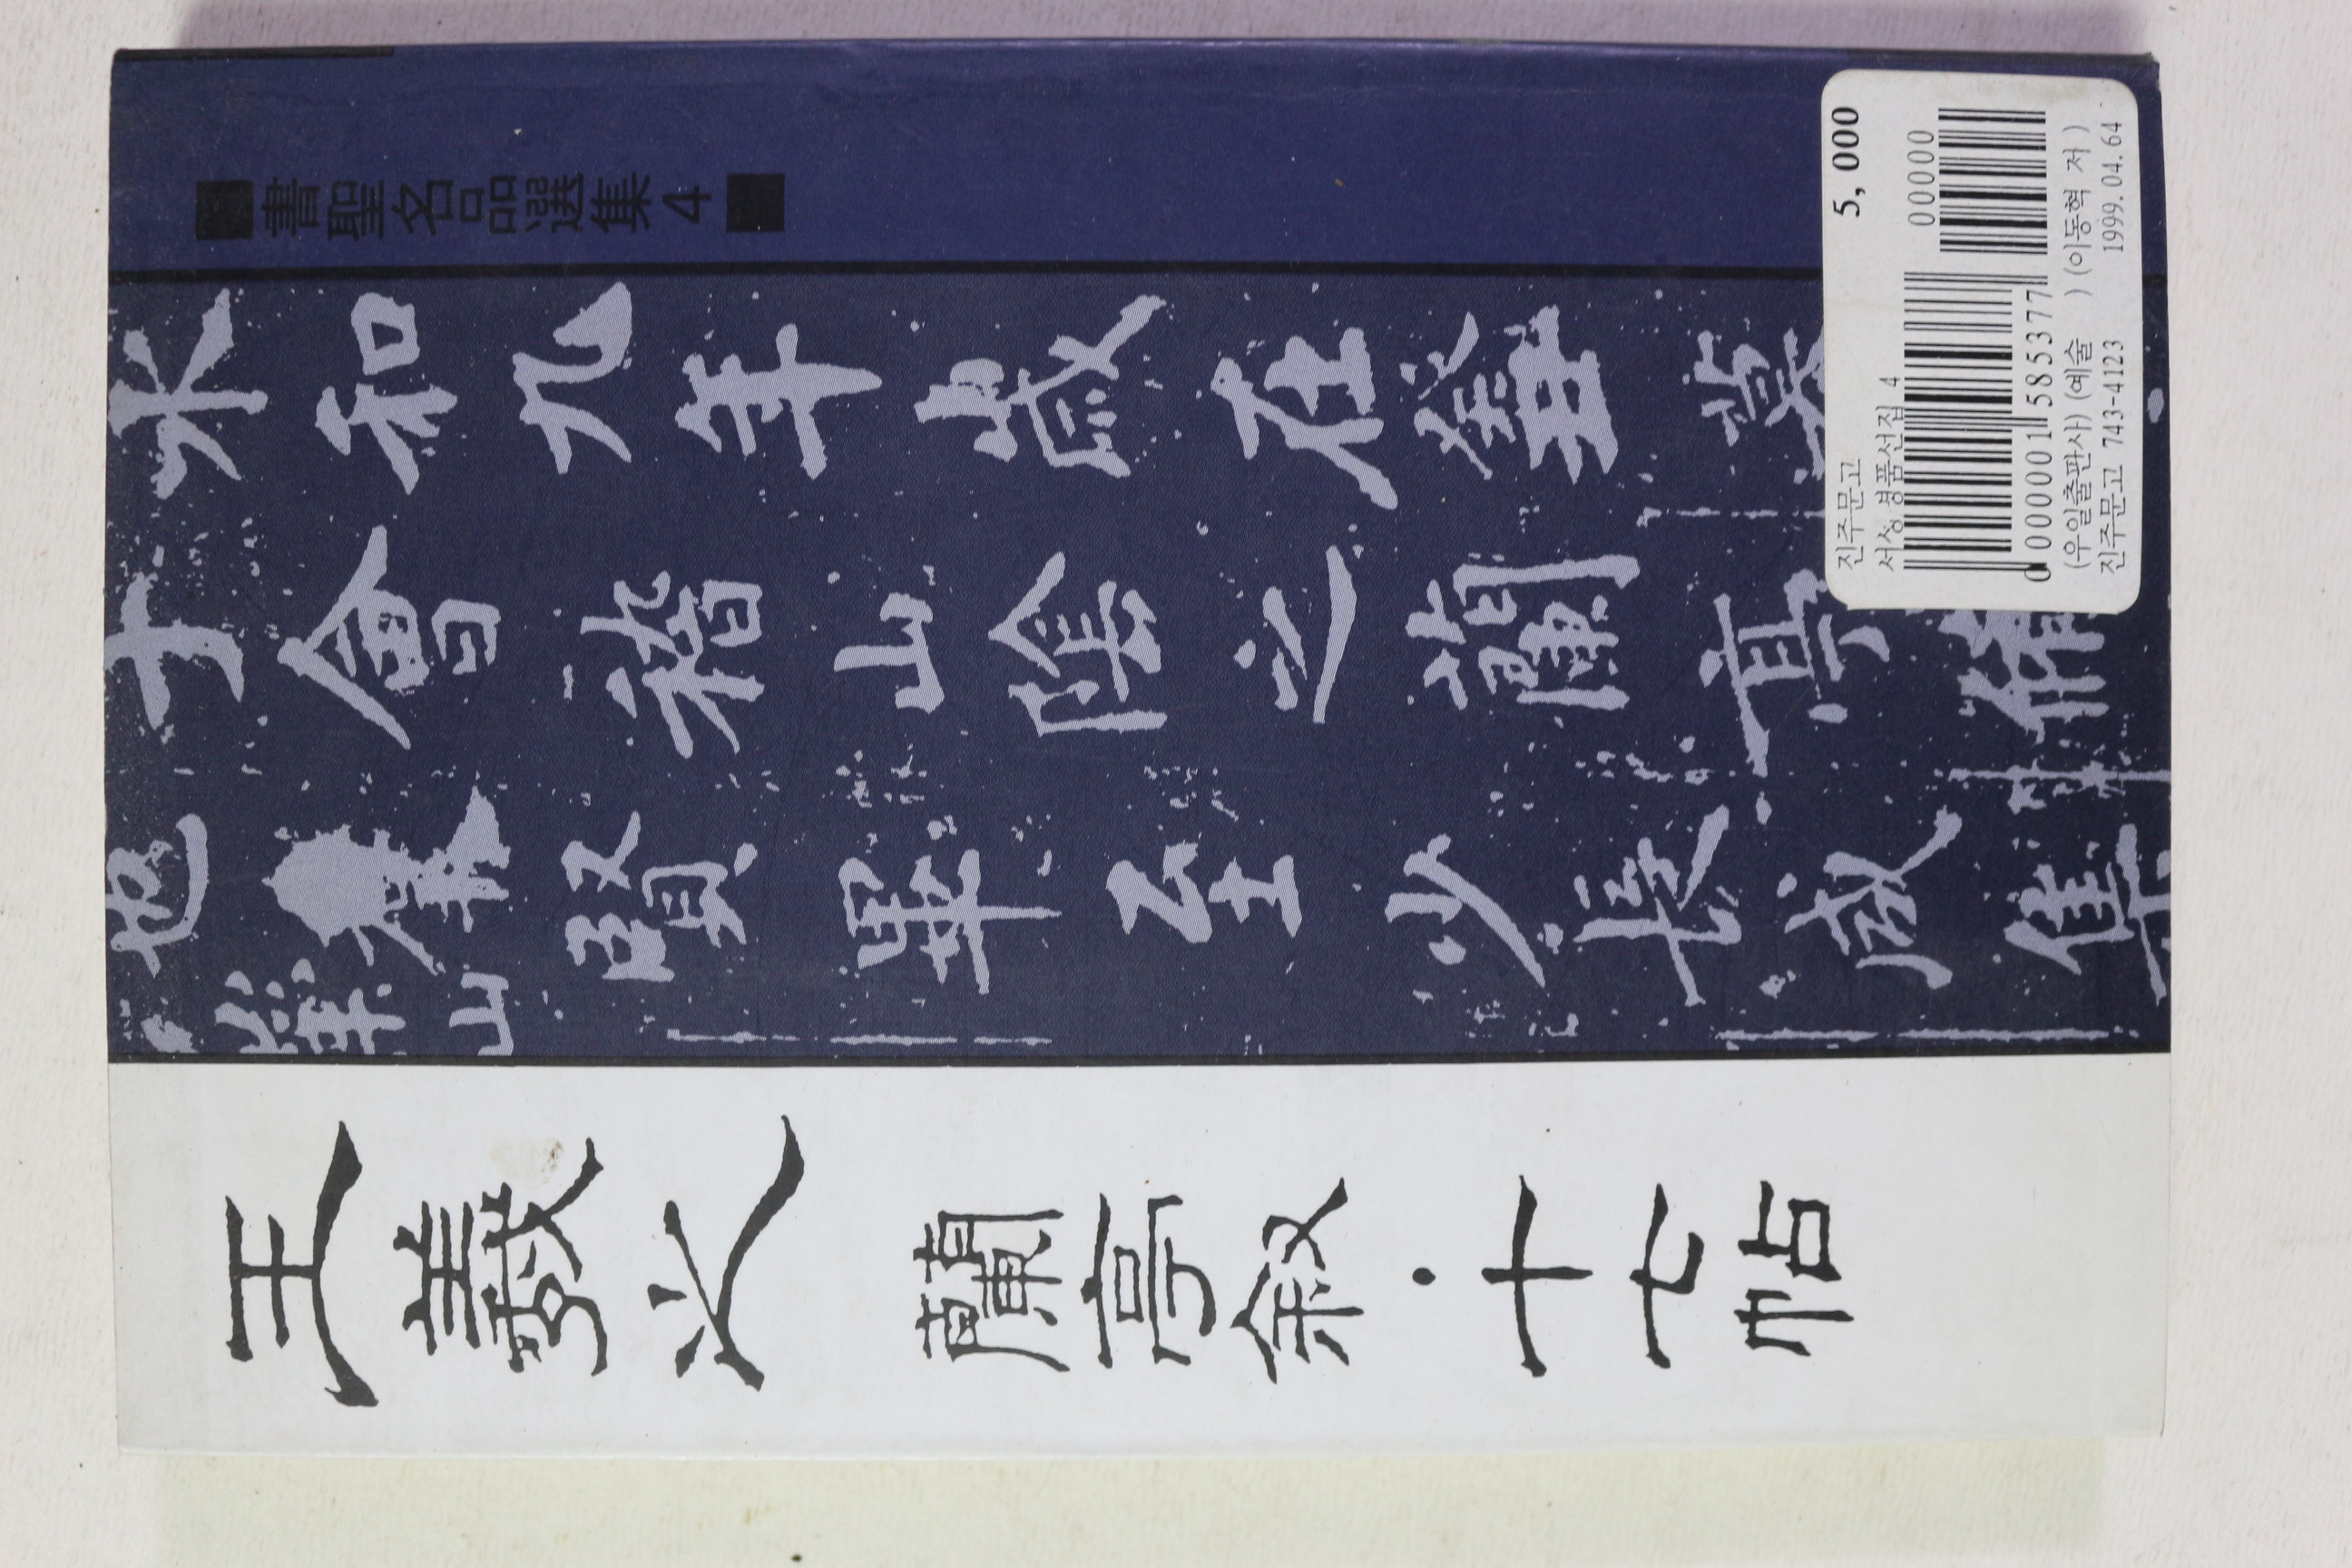 ■書聖名品選集4■
永和九年歲在癸丑暮
于會稽山陰之蘭亭脩
也羣賢畢至少長咸集
山
王羲之 蘭亭叙·十七帖
진주문고 5,000
서성명품선집 4
00000
0 000001 585377
(우일출판사) (예술 ) (이동혁 저 )
진주문고 743-4123 1999.04.64